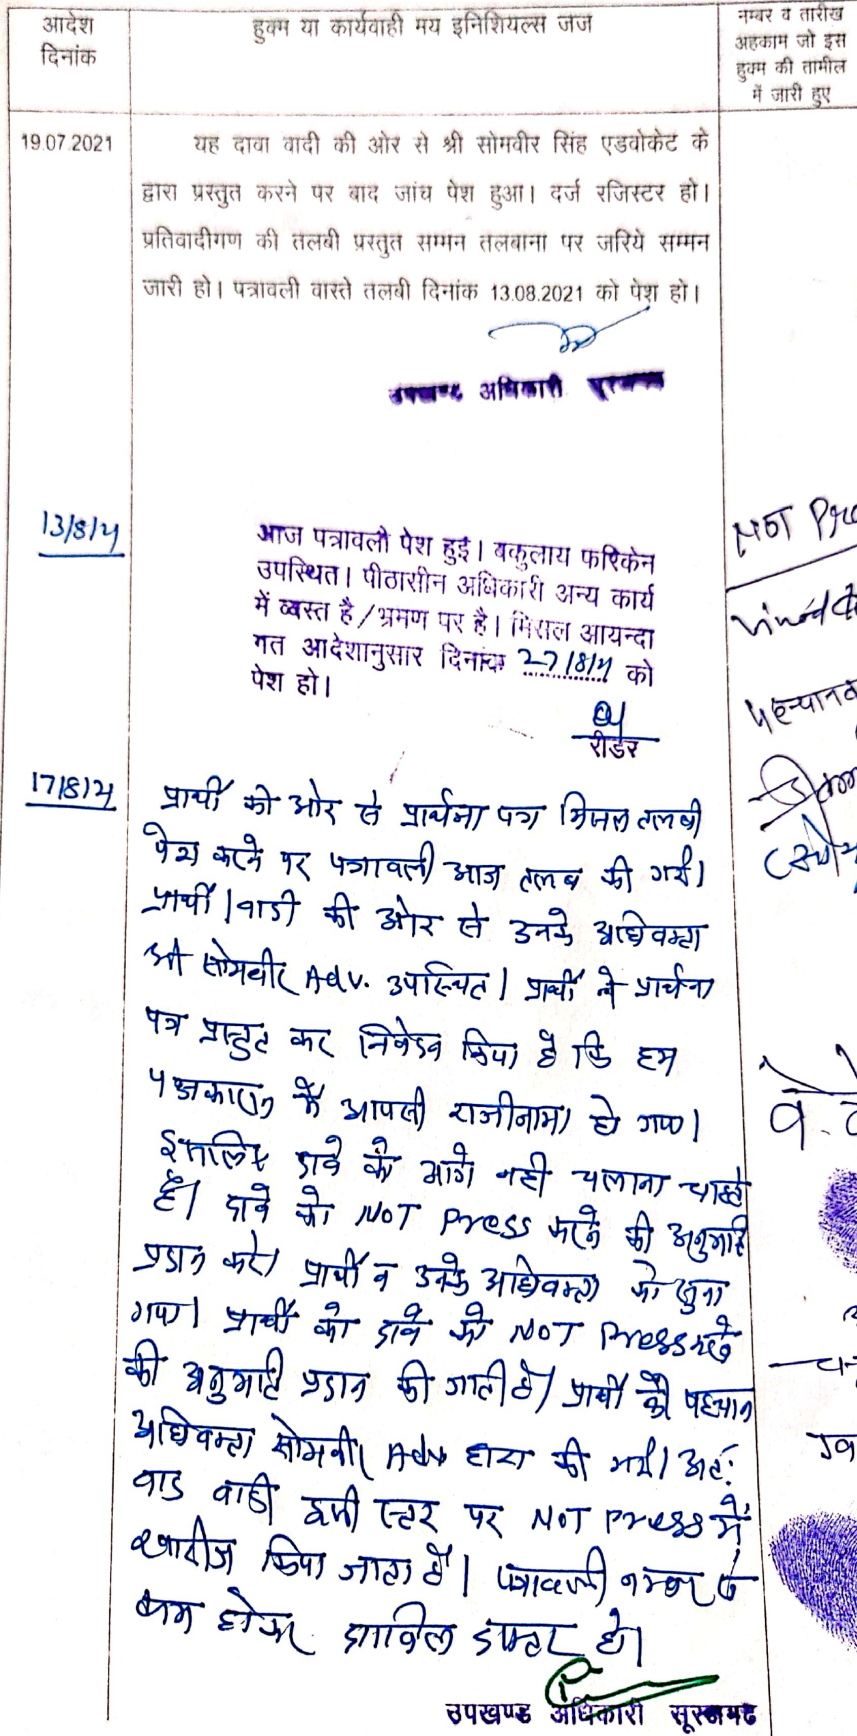 आदेश
दिनांक
हुक्म या कार्यवाही मय इनिशियल्स जज
नम्बर व तारीख
अहकाम जो इस
हुक्म की तामील
में जारी हुए
19.07.2021
यह दावा वादी की ओर से श्री सोमवीर सिंह एडवोकेट के
द्वारा प्रस्तुत करने पर बाद जांच पेश हुआ। दर्ज रजिस्टर हो।
प्रतिवादीगण की तलबी प्रस्तुत सम्मन तलबाना पर जरिये सम्मन
जारी हो। पत्रावली वास्ते तलबी दिनांक 13.08.2021 को पेश हो।
उपखण्ड अधिकारी
13/8/21
आज पत्रावली पेश हुई। वकुलाय फरिकेन
उपस्थित। पीठासीन अधिकारी अन्य कार्य
में व्यस्त है/भ्रमण पर है। मिसल आयन्दा
गत आदेशानुसार दिनांक 27/8/21 को
पेश हो।
रीडर
NOT Pre
17/8/21
प्रार्थी की ओर से प्रार्थना पत्र मिसल तलबी
पेश करने पर पत्रावली आज तलब की गई।
प्रार्थी/वादी की ओर से उनके अधिवक्ता
श्री सोमवीर Adv. उपस्थित। प्रार्थी ने प्रार्थना
पत्र प्रस्तुत कर निवेदन किया है कि हम
पक्षकारान के आपसी राजीनामा हो गया।
इसलिए दावे को आगे नही चलाना चाहते
है। दावे को NOT Press करने की अनुमति
प्रदान करे। प्रार्थी व उनके अधिवक्ता को सुना
गया। प्रार्थी को दावे को NOT Press करने
की अनुमति प्रदान की जाती है। प्रार्थी की पहचान
अधिवक्ता सोमवीर Adv द्वारा की गयी। अतः
वाद वादी इसी स्टर पर NOT Press में
खारीज किया जाता है। पत्रावली नम्बर से
कम होकर दाखिल दफ्तर हो।
उपखण्ड अधिकारी सूरजगढ